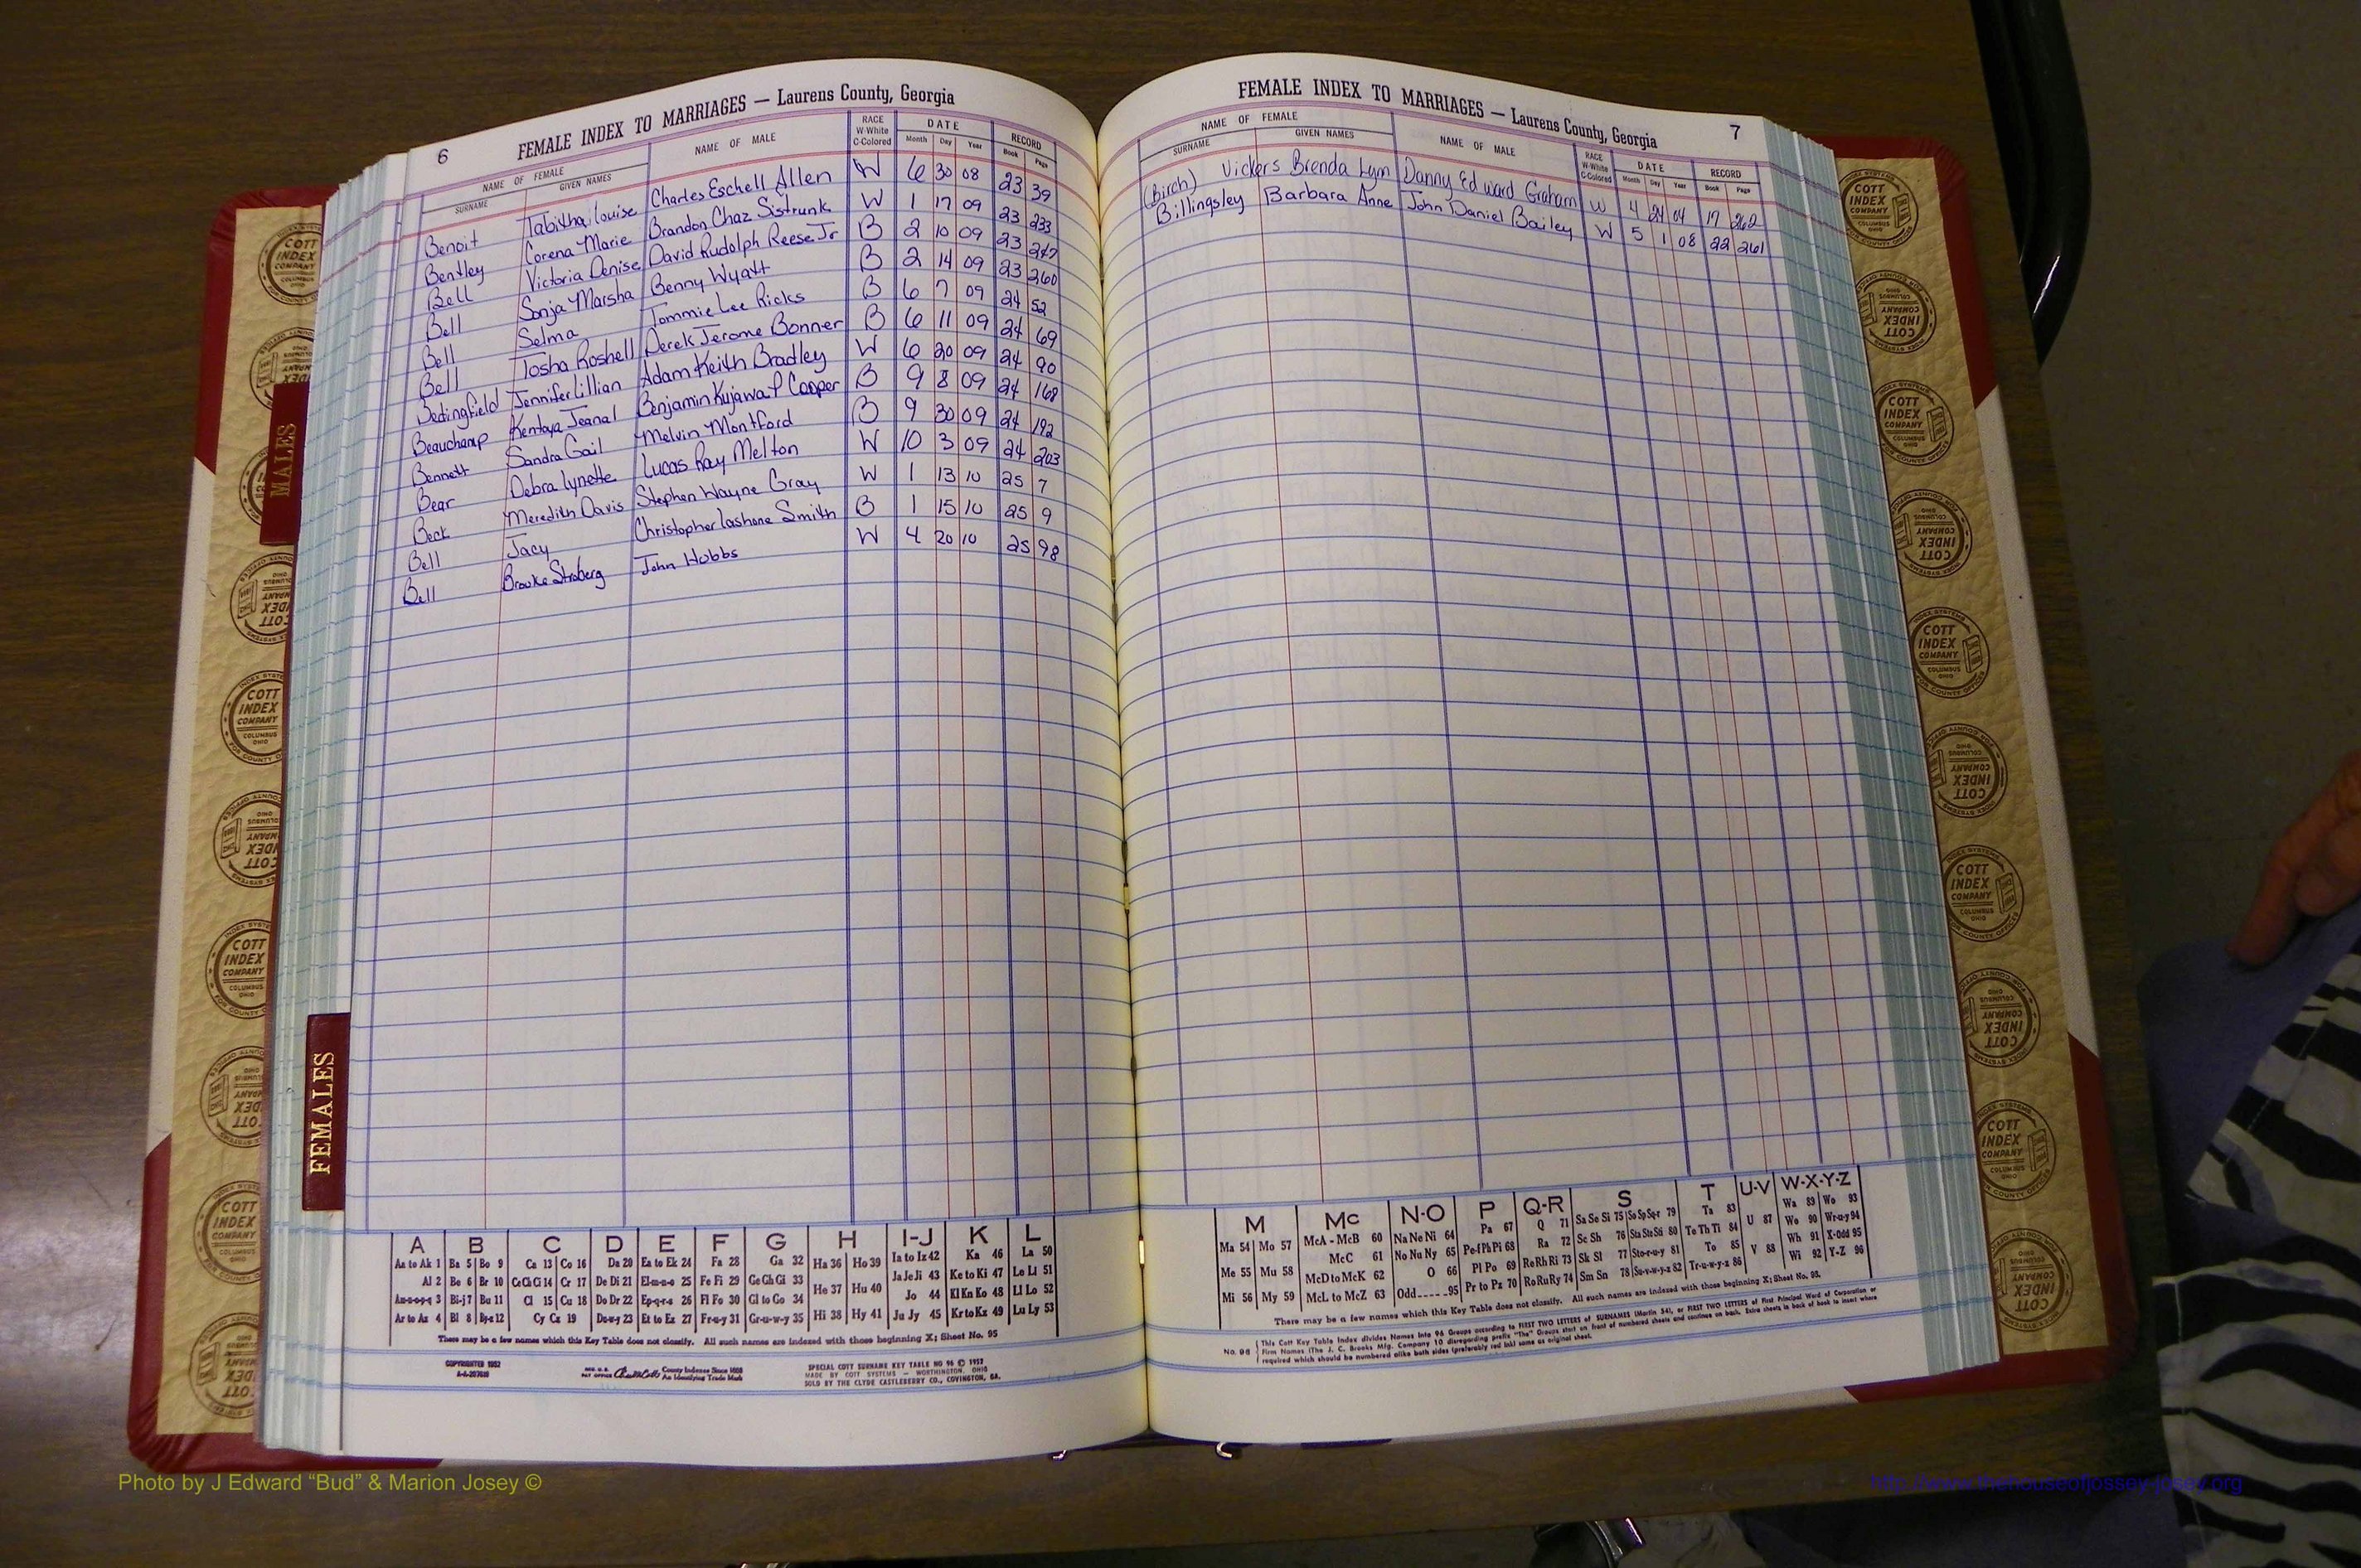 6 FEMALE INDEX TO MARRIAGES — Laurens County, Georgia
NAME OF FEMALE NAME OF MALE RACE W-White C-Colored DATE RECORD
SURNAME GIVEN NAMES Month Day Year Book Page
Benoit Tabitha Louise Charles Eschell Allen W 6 30 08 23 39
Bentley Corena Marie Brandon Chaz Sistrunk W 1 17 09 23 233
Bell Victoria Denise David Rudolph Reese Jr B 2 10 09 23 247
Bell Sonja Marsha Benny Wyatt B 2 14 09 23 260
Bell Selma Tommie Lee Ricks B 6 7 09 24 52
Bell Tosha Roshell Derek Jerome Bonner B 6 11 09 24 69
Bedingfield Jennifer Lillian Adam Keith Bradley W 6 20 09 24 90
Beauchamp Kentaya Jeanal Benjamin Kujawa P Cooper B 9 8 09 24 168
Bennett Sandra Gail Melvin Montford B 9 30 09 24 192
Bear Debra Lynette Lucas Ray Melton W 10 3 09 24 203
Beck Meredith Davis Stephen Wayne Gray W 1 13 10 25 7
Bell Jacy Christopher Lashone Smith B 1 15 10 25 9
Bell Brooke Stroberg John Hobbs W 4 20 10 25 98
A B C D E F G H I-J K L
Aa to Ak 1 Ba 5 Bo 9 Ca 13 Co 16 Da 20 Ea to Ek 24 Fa 28 Ga 32 Ha 36 Ho 39 Ia to Iz 42 Ka 46 La 50
Al 2 Be 6 Br 10 Ce Ch Ci 14 Cr 17 De Di 21 El-m-n-o 25 Fe Fi 29 Ge Gh Gi 33 He 37 Hu 40 Ja Je Ji 43 Ke to Ki 47 Le Li 51
Am-n-o-p-q 3 Bi-j 7 Bu 11 Cl 15 Cu 18 Do Dr 22 Ep-q-r-s 26 Fl Fo 30 Gl to Go 34 Jo 44 Kl Kn Ko 48 Ll Lo 52
Ar to Az 4 Bl 8 By-z 12 Cy Cz 19 Du-w-y 23 Et to Ez 27 Fr-u-y 31 Gr-u-w-y 35 Hi 38 Hy 41 Ju Jy 45 Kr to Kz 49 Lu Ly 53
There may be a few names which this Key Table does not classify. All such names are indexed with those beginning X; Sheet No. 95
COPYRIGHTED 1952
County Indexes Since 1888
An Identifying Trade Mark
SPECIAL COTT SURNAME KEY TABLE NO 96 © 1957
MADE BY COTT SYSTEMS — WORTHINGTON, OHIO
SOLD BY THE CLYDE CASTLEBERRY CO., COVINGTON, GA.
FEMALE INDEX TO MARRIAGES — Laurens County, Georgia 7
NAME OF FEMALE NAME OF MALE RACE W-White C-Colored DATE RECORD
SURNAME GIVEN NAMES Month Day Year Book Page
(Birch) Vickers Brenda Lynn Danny Edward Graham W 4 24 04 17 262
Billingsley Barbara Anne John Daniel Bailey W 5 1 08 22 261
M Mc N-O P Q-R S T U-V W-X-Y-Z
Ma 54 Mo 57 McA - McB 60 Na Ne Ni 64 Pa 67 Q 71 Sa Se Si 75 So Sp Sq-r 79 Ta 83 U 87 Wa 89 Wo 93
Me 55 Mu 58 McC 61 No Nu Ny 65 Pe-f Ph Pi 68 Ra 72 Sc Sh 76 Sta Ste Sti 80 Te Th Ti 84 We 90 Wr-u-y 94
McD to McK 62 O 66 Pl Po 69 Re Rh Ri 73 Sk Sl 77 Sto-r-u-y 81 To 85 V 88 Wh 91 X-Odd 95
Mi 56 My 59 McL to McZ 63 Odd 95 Pr to Pz 70 Ro Ru Ry 74 Sm Sn 78 Su-v-w-y-z 82 Tr-u-w-y-z 86 Wi 92 Y-Z 96
There may be a few names which this Key Table does not classify. All such names are indexed with those beginning X; Sheet No. 95.
No. 96 This Cott Key Table Index divides Names into 96 Groups according to FIRST TWO LETTERS of SURNAMES (Martin 54), or FIRST TWO LETTERS of First Principal Word of Corporation or
Firm Names (The J. C. Brooks Mfg. Company 10 disregarding prefix "The" Groups start on front of numbered sheets and continue on back. Extra sheets in back of book to insert where
required which should be numbered alike both sides (preferably red ink) same as original sheet.
MALES
FEMALES
COTT INDEX COMPANY COLUMBUS OHIO
INDEX SYSTEMS FOR COUNTY OFFICES
Photo by J Edward “Bud” & Marion Josey ©
http://www.thehouseofjossey-josey.org